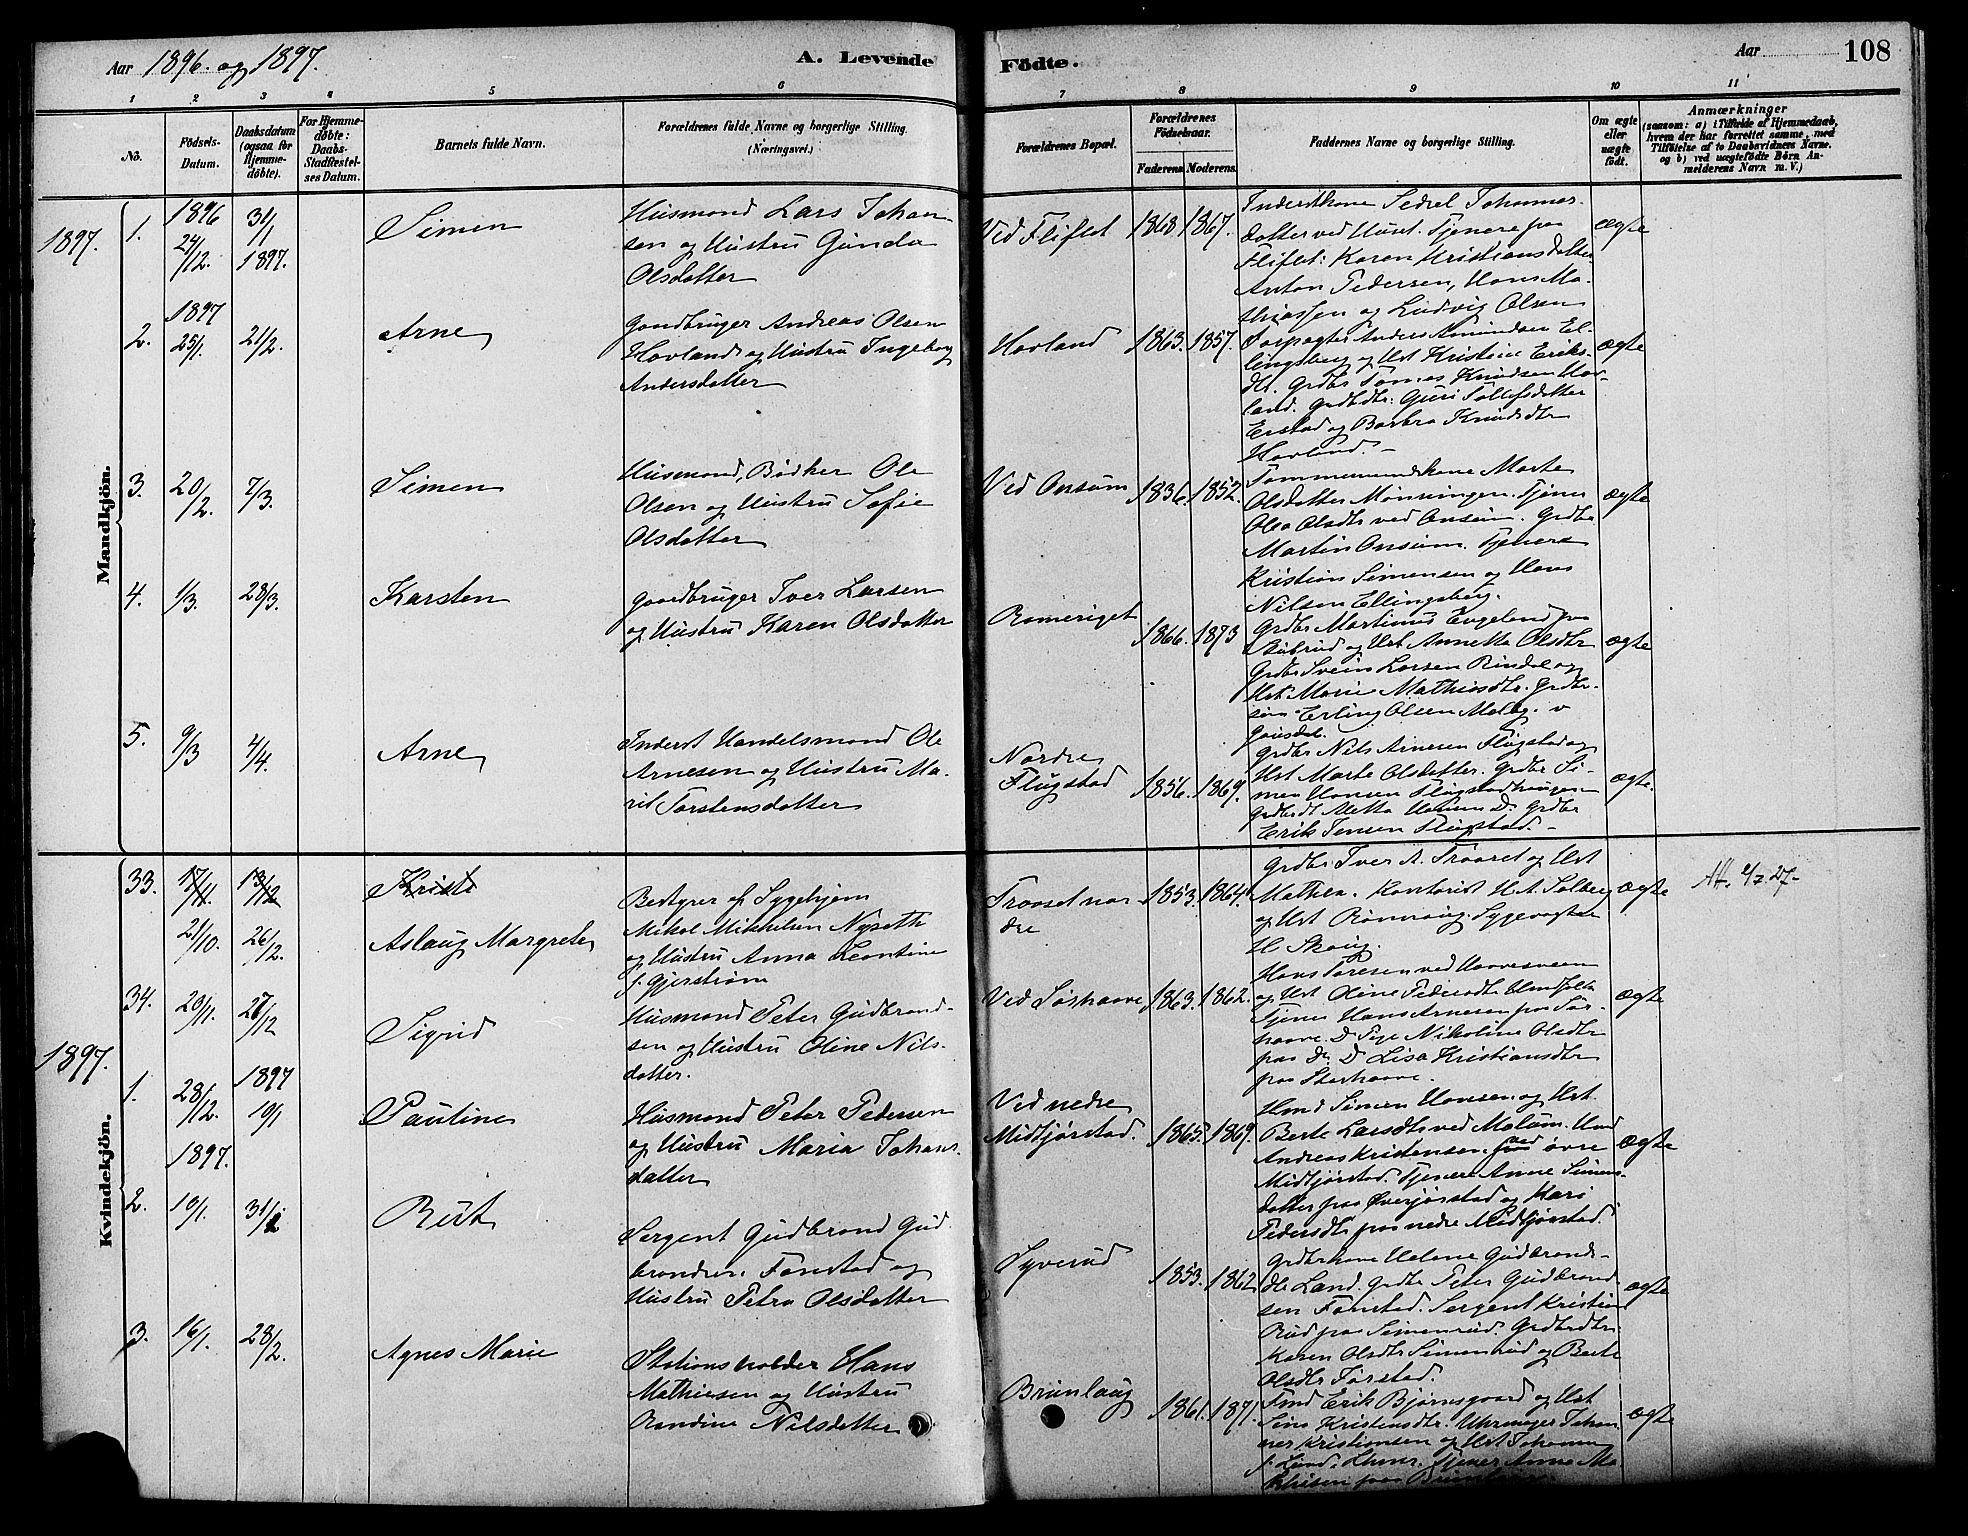 Aar 1896. og 1897.
A. Levende
Födte.
Aar
108
1
2
3
4
5
6
7
8
9
10
11
No.
Födsels-
Datum.
Daabsdatum
(ogsaa for
Hjemme-
döbte).
For Hjemme-
döbte:
Daabs-
Stadfæstel-
ses Datum.
Barnets fulde Navn.
Forældrenes fulde Navne og borgerlige Stilling.
(Næringsvei.)
Forældrenes Bopæl.
Forældrenes
Födselsaar.
Faderens
Moderens.
Faddernes Navne og borgerlige Stilling.
Om ægte
eller
uægte
födt.
Anmærkninger
(saasom: a) i Tilfælde af Hjemmedaab,
hvem der har forrettet samme, med
Tilföielse af to Daabsvidners Navne.
og b) ved uægtefödte Börn An-
melderens Navn m. V.)
Mandkjön.
1897.
1.
1896
24/12.
31/1
1897.
Simen
Husmand Lars Johan-
sen og Hustru Gunda
Olsdatter
Ved Fliflet
1868
1867.
Inderstkone Sedsel Johannes-
datter ved Huset. Tjenere paa
Fliflet: Karen Kristiansdatter
Anton Pedersen, Hans Ma-
thiassen og Ludvig Olsen
ægte
2.
1897
25/1.
21/2.
Arne
Gaardbruger Andreas Olsen
Hovland og Hustru Ingeborg
Andersdatter
Hovland
1863.
1857.
Forpagter Anders Amundsen El-
lingsberg og Hst Kristine Eriks-
dtr. Grdbr Tomas Knudsen Hov-
land. Grdbdtr: Guri Tollefsdatter
Erstad og Barbra Knudsdtr
Hovland. -
ægte
3.
20/2.
7/3.
Simen
Husmand, Bødker Ole
Olsen og Hustru Sofie
Olsdatter
Ved Onsum
1836.
1852.
Tømmermandskone Marte
Olsdatter Mønningen. Tjener
Olea Olsdtr ved Onsum. Grdbr
Martin Onsum. Tjenere
Kristian Simensen og Hans
Nilsen Ellingsberg.
ægte
4.
1/3.
28/3.
Karsten
Gaardbruger Iver Larsen
og Hustru Karen Olsdatter
Romeriget
1866.
1873
Grdbr Martinus Engeland paa
og Hst Annetta Olsdtr
Grdbr Svein Larsen Rindal og
Hst Marie Mathiasdtr. Grdbr-
søn Erling Olsen Melby. v
Gausdal.
ægte
5.
9/3
4/4.
Arne
Inderst Handelsmand Ole
Arnesen og Hustru Ma-
rit Torstensdatter
Nordre
Flugstad
1856.
1869.
Grdbr Nils Arnesen Flugstad og
Hst Marte Olsdatter. Grdbr Si-
men Hansen
Grdbrdt Mette Hansen D. Grdbr
Erik Jensen Flugstad. -
ægte.
Kvindekjön.
33.
17/11.
13/12
Kristi
21/10.
26/12.
Aslaug Margrete
Bestyrer af Sygehjem
Mikal Mikkelsen Nyseth
og Hustru Anna Leontine
f. Gjerstrøm
Traaset nor
dre
1853.
1864.
Grdbr Iver A. Traaset og Hst
Mathea. Kontorist H. A. Solberg
og Hst Rønnaug. Sygevogter
H. Skaug.
ægte
Att. 2/7.27-
34.
20/11.
27/12
Sigrid
Husmand Peter Gudbrand-
sen og Hustru Oline Nils-
datter.
Ved Sørhaave
1863.
1862.
Hans Toresen ved Haavesveen
og Hst Oline Pedersdtr
Tjener Hans Arnesen paa Sør-
haave. D. Pige Nikoline Olsdtr
paa do. D Lisa Kristiansdtr
paa Storhaave.
ægte
1897.
1.
28/12.
1897
10/1
Pauline
Husmand Peter Pedersen
og Hustru Maria Johans-
datter
Ved nedre
Midtjørstad.
1865.
1869.
Hmd Simen Hansen og Hst.
Berte Larsdtr ved Molum. Hmd
Andreas Kristensen ved øvre
Midtjørstad. Tjenere Anne Simens-
datter paa Øverjørstad og Kari
Pedersdtr paa nedre Midtjørstad.
ægte
1897.
2.
10/1.
31/1
Rut
Sergent Gudbrand Gud
brandsen Fonstad og
Hustru Petra Olsdatter
Syverud
1853.
1862
Grdbrkone Helene Gudbrands-
dtr Land. Grdbr Peter Gudbrand
sen Fonstad. Sergent Kristian
Rud paa Simenrud. Grdbrdtr:
Karen Olsdtr Simenrud og Berte
Olsdtr Forstad.
ægte
3.
16/1.
28/2.
Agnes Marie
Stationsholder Hans
Mathiesen og Hustru
Randine Nilsdatter
Brunlaug
1861.
1871.
Fmd Erik Bjørnsgaard og Hst
Sina Kristensdtr. Uhrmager Johan-
nes Kristiansen og Hst Johanne
f. Lund. Tjener Anne Ma-
thisen paa Brunlaug
ægte